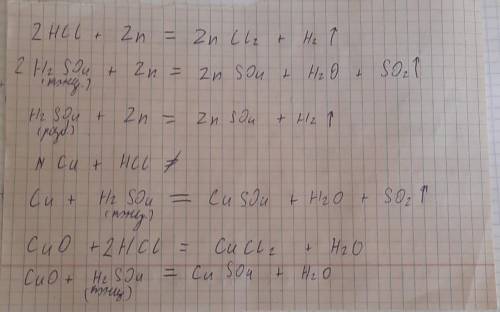 2HCl + Zn = ZnCl2 + H2↑
2H2SO4 + Zn = ZnSO4 + H2O + SO2↑
H2SO4 + Zn = ZnSO4 + H2↑
(розб)
N Cu + HCl ≠
Cu + H2SO4 = CuSO4 + H2O + SO2↑
CuO + 2HCl = CuCl2 + H2O
CuO + H2SO4 = CuSO4 + H2O